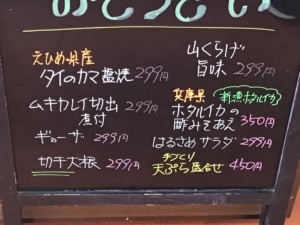 おとうとい
えひめ県産
タイのカマ塩焼 299円
ムキカレイ切出
煮付
ギョーザ 299円
切干大根 299円
山くらげ
旨味 299円
兵庫県 新漁ホタルイカ
ホタルイカの
酢みそあえ 350円
はるさめサラダ 299円
手づくり
天ぷら盛合せ 450円